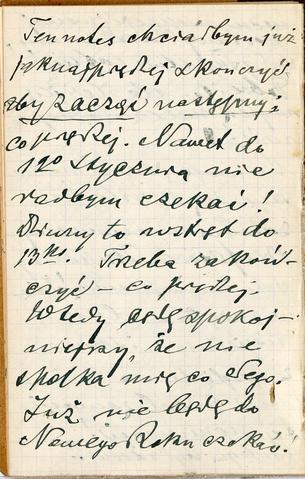 Ten notes chciałbym już
jaknajprędzej skończyć
żeby zacząć następny,
co prędzej. Nawet do
12º Stycznia nie
radbym czekać!
Dziwny to wstręt do
13ki. Trzeba zakoń-
czyć – co prędzej.
Wtedy będę spokoj-
niejszy, że nie
spotka mię co złego.
Już nie będę do
Nowego Roku czekać!